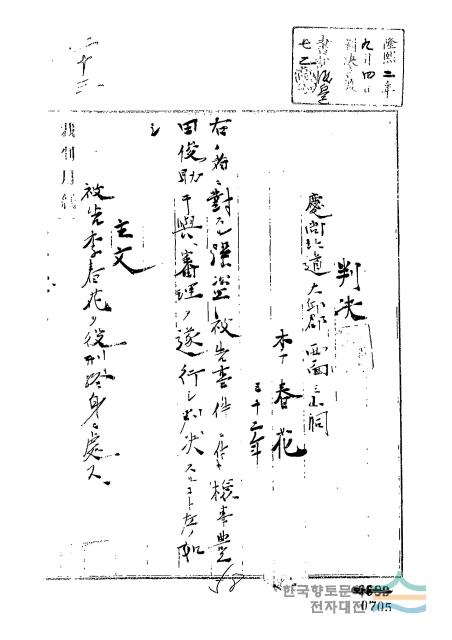 隆熙二年
九月四日
判決言渡
判決
慶尚北道大邱郡西面三小洞
李春花
三十二年
右ノ者ニ對スル強盜被告事件ニ付キ檢事豊
田俊助干與審理ヲ遂行シ判決スルコト左ノ如
シ
主文
被告李春花ヲ役刑終身ニ處ス
二十三
58
한국향토문화
전자대전
0705